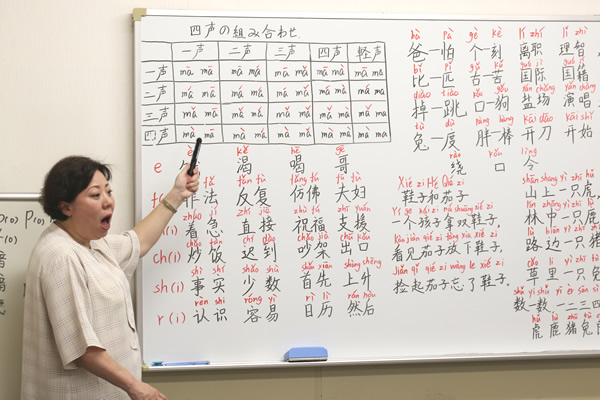 四声の組み合わせ
一声 二声 三声 四声 軽声
一声 mā mā mā má mā mǎ mā mà mā ma
二声 má mā má má má mǎ má mà má ma
三声 mǎ mā mǎ má mǎ mǎ mǎ mà mǎ ma
四声 mà mā mà má mà mǎ mà mà mà ma
kě hē gē
e 渴 喝 哥
fǎ fǎn fù fǎng fú fū fù
法 反复 仿佛 夫妇
zháo jí zhí jiē zhù fú zhī yuán
着急 直接 祝福 支援
chǎo fàn chí dào chǎo jià chū kǒu
ch(i) 炒饭 迟到 吵架 出口
shì shí shǎo shù shǒu xiān shàng shēng
sh(i) 事实 少数 首先 上升
rèn shi róng yì rì lì rán hòu
r(i) 认识 容易 日历 然后
bà pà gè kè lí zhí lǐ zhì
爸一怕 个一刻 离职 理智
bǐ pǐ gǔ kǔ guó jì guó jí
比一匹 古一苦 国际 国籍
diào tiào kǒu gǒu yán chǎng yǎn chàng
掉一跳 口一狗 盐场 演唱
tù dù pàng bàng kāi dāo kāi shǐ
兔一度 胖一棒 开刀 开始
rào kǒu lìng
绕 口 令
Xié zi Hé Qié zi
鞋子和茄子
Yí ge hái zi ná shuāng xié zi
一个孩子拿双鞋子,
kàn jiàn qié zi fàng xià xié zi
看见茄子放下鞋子,
Jiǎn qǐ qié zi wàng le xié zi
捡起茄子忘了鞋子.
shān shang yì zhī hǔ
山上一只虎,
lín zhōng yì zhī lù
林中一只鹿,
lù biān yì zhī zhū
路边一只猪
cǎo li yì zhī tù
草里一只兔
shǔ yi shǔ yī èr sān sì
数一数一二三四
hǔ lù zhū tù
虎鹿猪兔